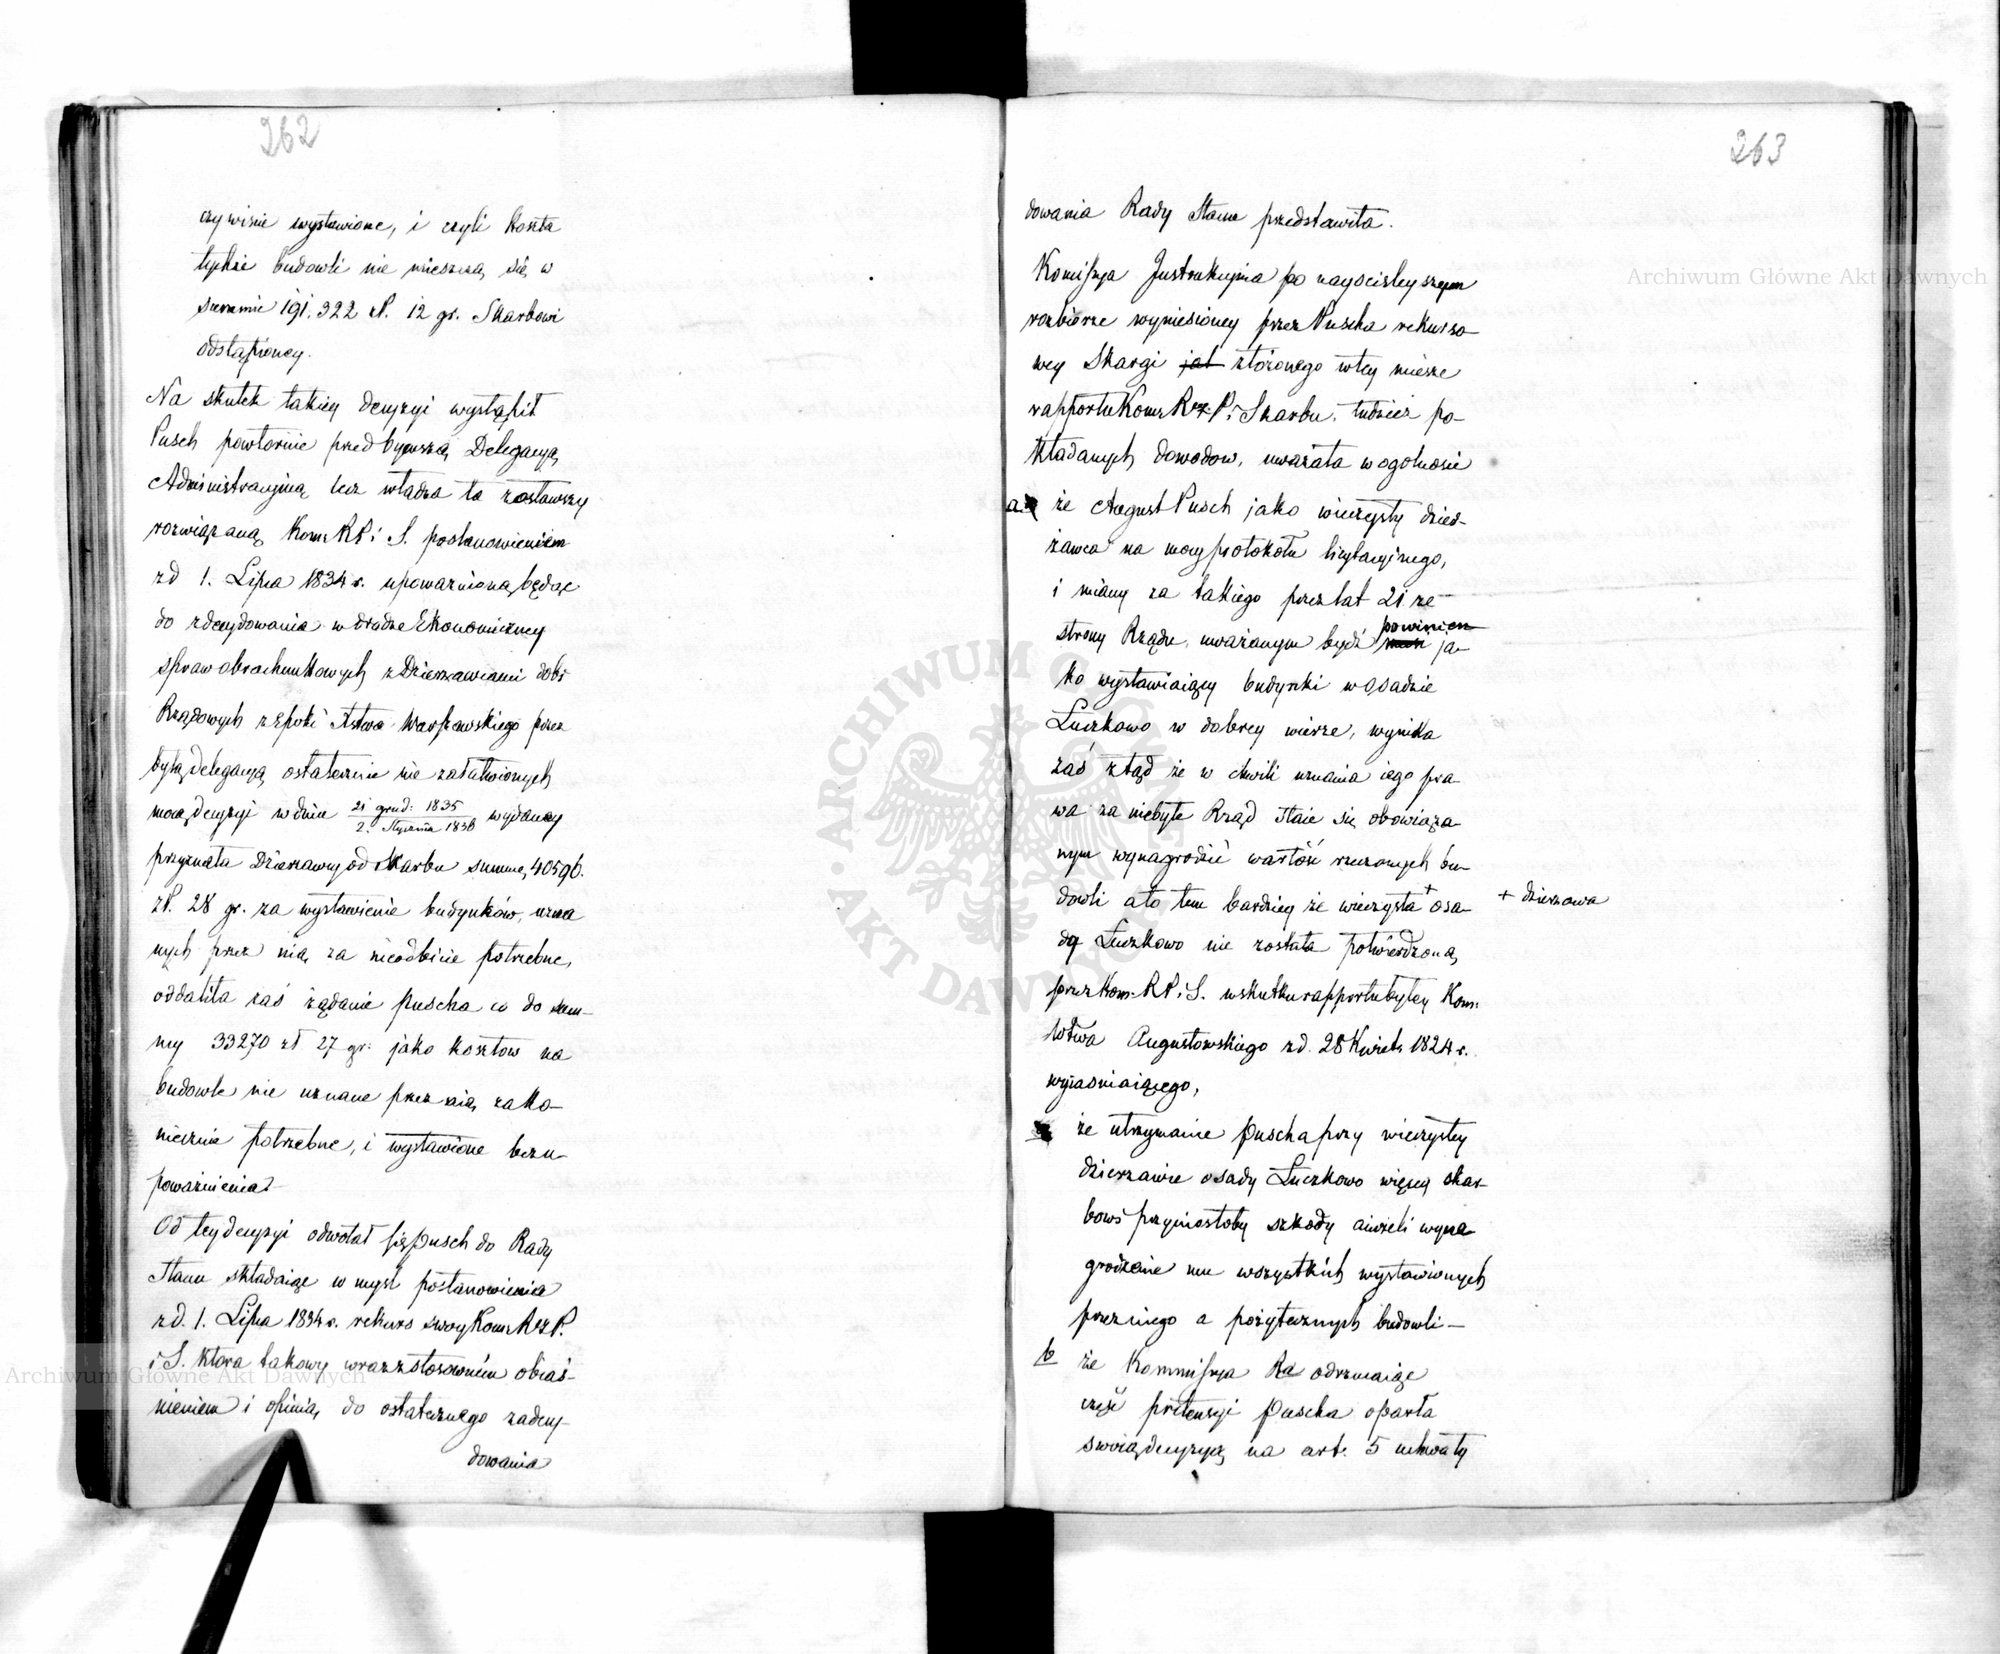 262
czywiście wystawione, i czyli koszta
tychże budowli nie mieszczą się w
summie 191.322 zł. 12 gr. Skarbowi
odstąpioney.
Na skutek takiey decyzyi wystąpił
Pusch powtórnie przed bywszą Delegacyą
Administracyiną lecz władza ta zostawszy
rozwiązaną Kom: R P i S. postanowieniem
z d 1. Lipca 1834 r. upoważnioną będąc
do zdecydowania w drodze Ekonomiczney
spraw obrachunkowych z Dzierzawcami dobr
Rządowych z epoki Xstwa Warszawskiego przez
byłą delegacyą ostatecznie nie załatwionych
mocą decyzyi w dniu 21 grud: 1835 / 2. Stycznia 1836 wydaney
przyznała Dzierzawcy od Skarbu summę 40596.
zł. 28 gr. za wystawienie budynków, uzna
nych przez nią za nieodbicie potrzebne,
oddaliła zaś żądanie Puscha co do sum-
my 33270 zł 27 gr: jako kosztow na
budowle nie uznane przez nią za ko-
niecznie potrzebne, i wystawione bez u-
poważnienia.
Od tey decyzyi odwołał się Pusch do Rady
Stanu składaiąc w myśl postanowienia
z d. 1. Lipca 1834 r. rekurs swoy Kom: Rz P.
i S. ktora takowy wraz z stosownem obiaś-
nieniem i opinią do ostatecznego zadecy-
dowania
263
dowania Rady Stanu przedstawiła.
Kommissya Instrukcyina po nayscisleyszym
rozbiorze wyniesioney przez Puscha rekurso-
wey Skargi jak złożonego w tey mierze
rapportu Kom: Rz: P. i Skarbu, tudzież po-
kładanych dowodow, uważała w ogolności
a że August Pusch jako wieczysty dzier-
żawca na mocy protokołu licytacyinego,
i miany za takiego przez lat 21 ze
strony Rządu, uważanym bydź powinien ja-
ko wystawiaiący budynki w osadzie
Luczkowo w dobrey wierze, wynika
zaś ztąd że w chwili uznania iego pra
wa za niebyłe Rząd staie się obowiąza-
nym wynagrodzić wartość rzeczonych bu-
dowli a to tem bardziey że wieczysta + osa-
+ dzierzawa
dy Luczkowo nie została potwierdzoną
przez Kom: R P. i S. w skutku rapportu byłey Kom:
Wdztwa Augustowskiego z d. 28 Kwiet: 1824 r.
wyiaśniaiącego,
że utrzymanie Puscha przy wieczystey
dzierzawie osady Luczkowo więcey skar-
bowi przyniosłoby szkody aniżeli wyna
grodzenie mu wszystkich wystawionych
przez niego a pożytecznych budowli —
b że Kommissya Rz odrzucaiąc
część pretensyi Puscha oparła
swoią decyzyą na art. 5 uchwały
Archiwum Główne Akt Dawnych
Archiwum Główne Akt Dawnych
ARCHIWUM GŁÓWNE AKT DAWNYCH